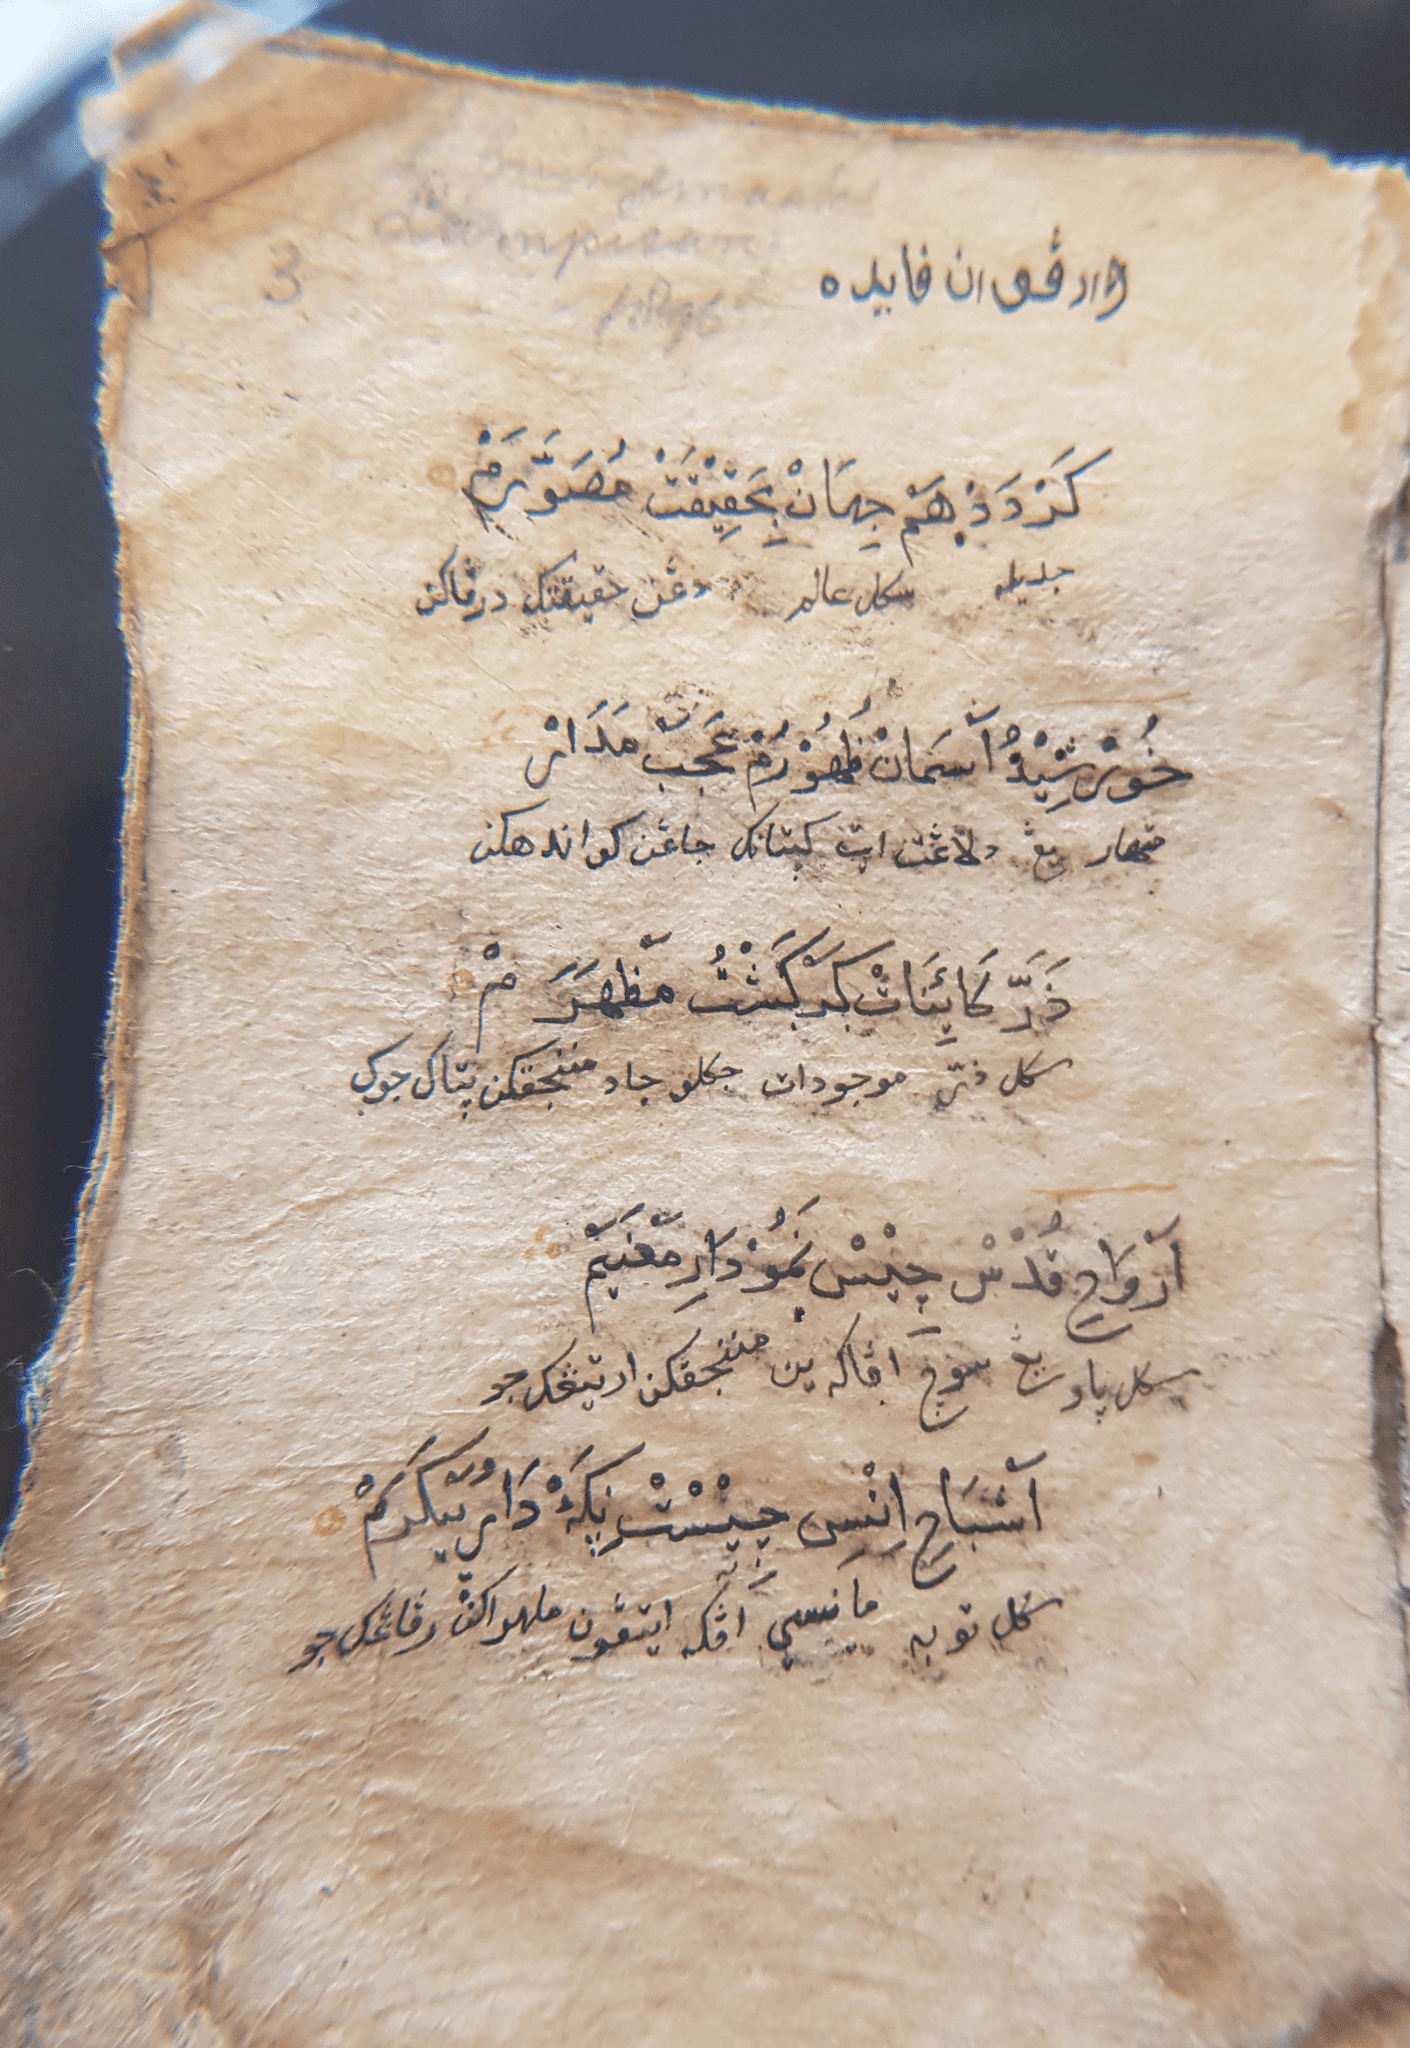 3
1896
ان فايده
كَرْدَدْ هَمَ جِهَانْ بِحَقِيْقَتْ مُصَوَّرَمْ
جديله سكل عالم دڠن حقيقتك درڤاكن
خُوْرشِيْدُ آسَمَانْ ظُهُوْرُمْ عَجَبْ مَدَارْ
متهار يڠ دلاڠت ايت كپتانك جاڠن كو اندهكن
ذَرَّ كَائِنَاتْ كَرْ كَشْتُ مَظْهَرَ مْ
سكل ذرّ موجودات جكلو جاد مننجقكن پتاك جوك
اَرْوَاحِ قُدْسْ چِيْسْ نَمُوْدَارِ مَعْنَيَمْ
سكل پاو يڠ سوچ اڤاكه ين مننجقكن ارتيڠك جو
اَشْبَاحِ اِنْسِ چِيْسْتْ نِكَهْ دَارِ پَيْكَرَمْ
سكل توبه مانسي اڤكه ايتڤون ملهراكن رڤاڠك جو